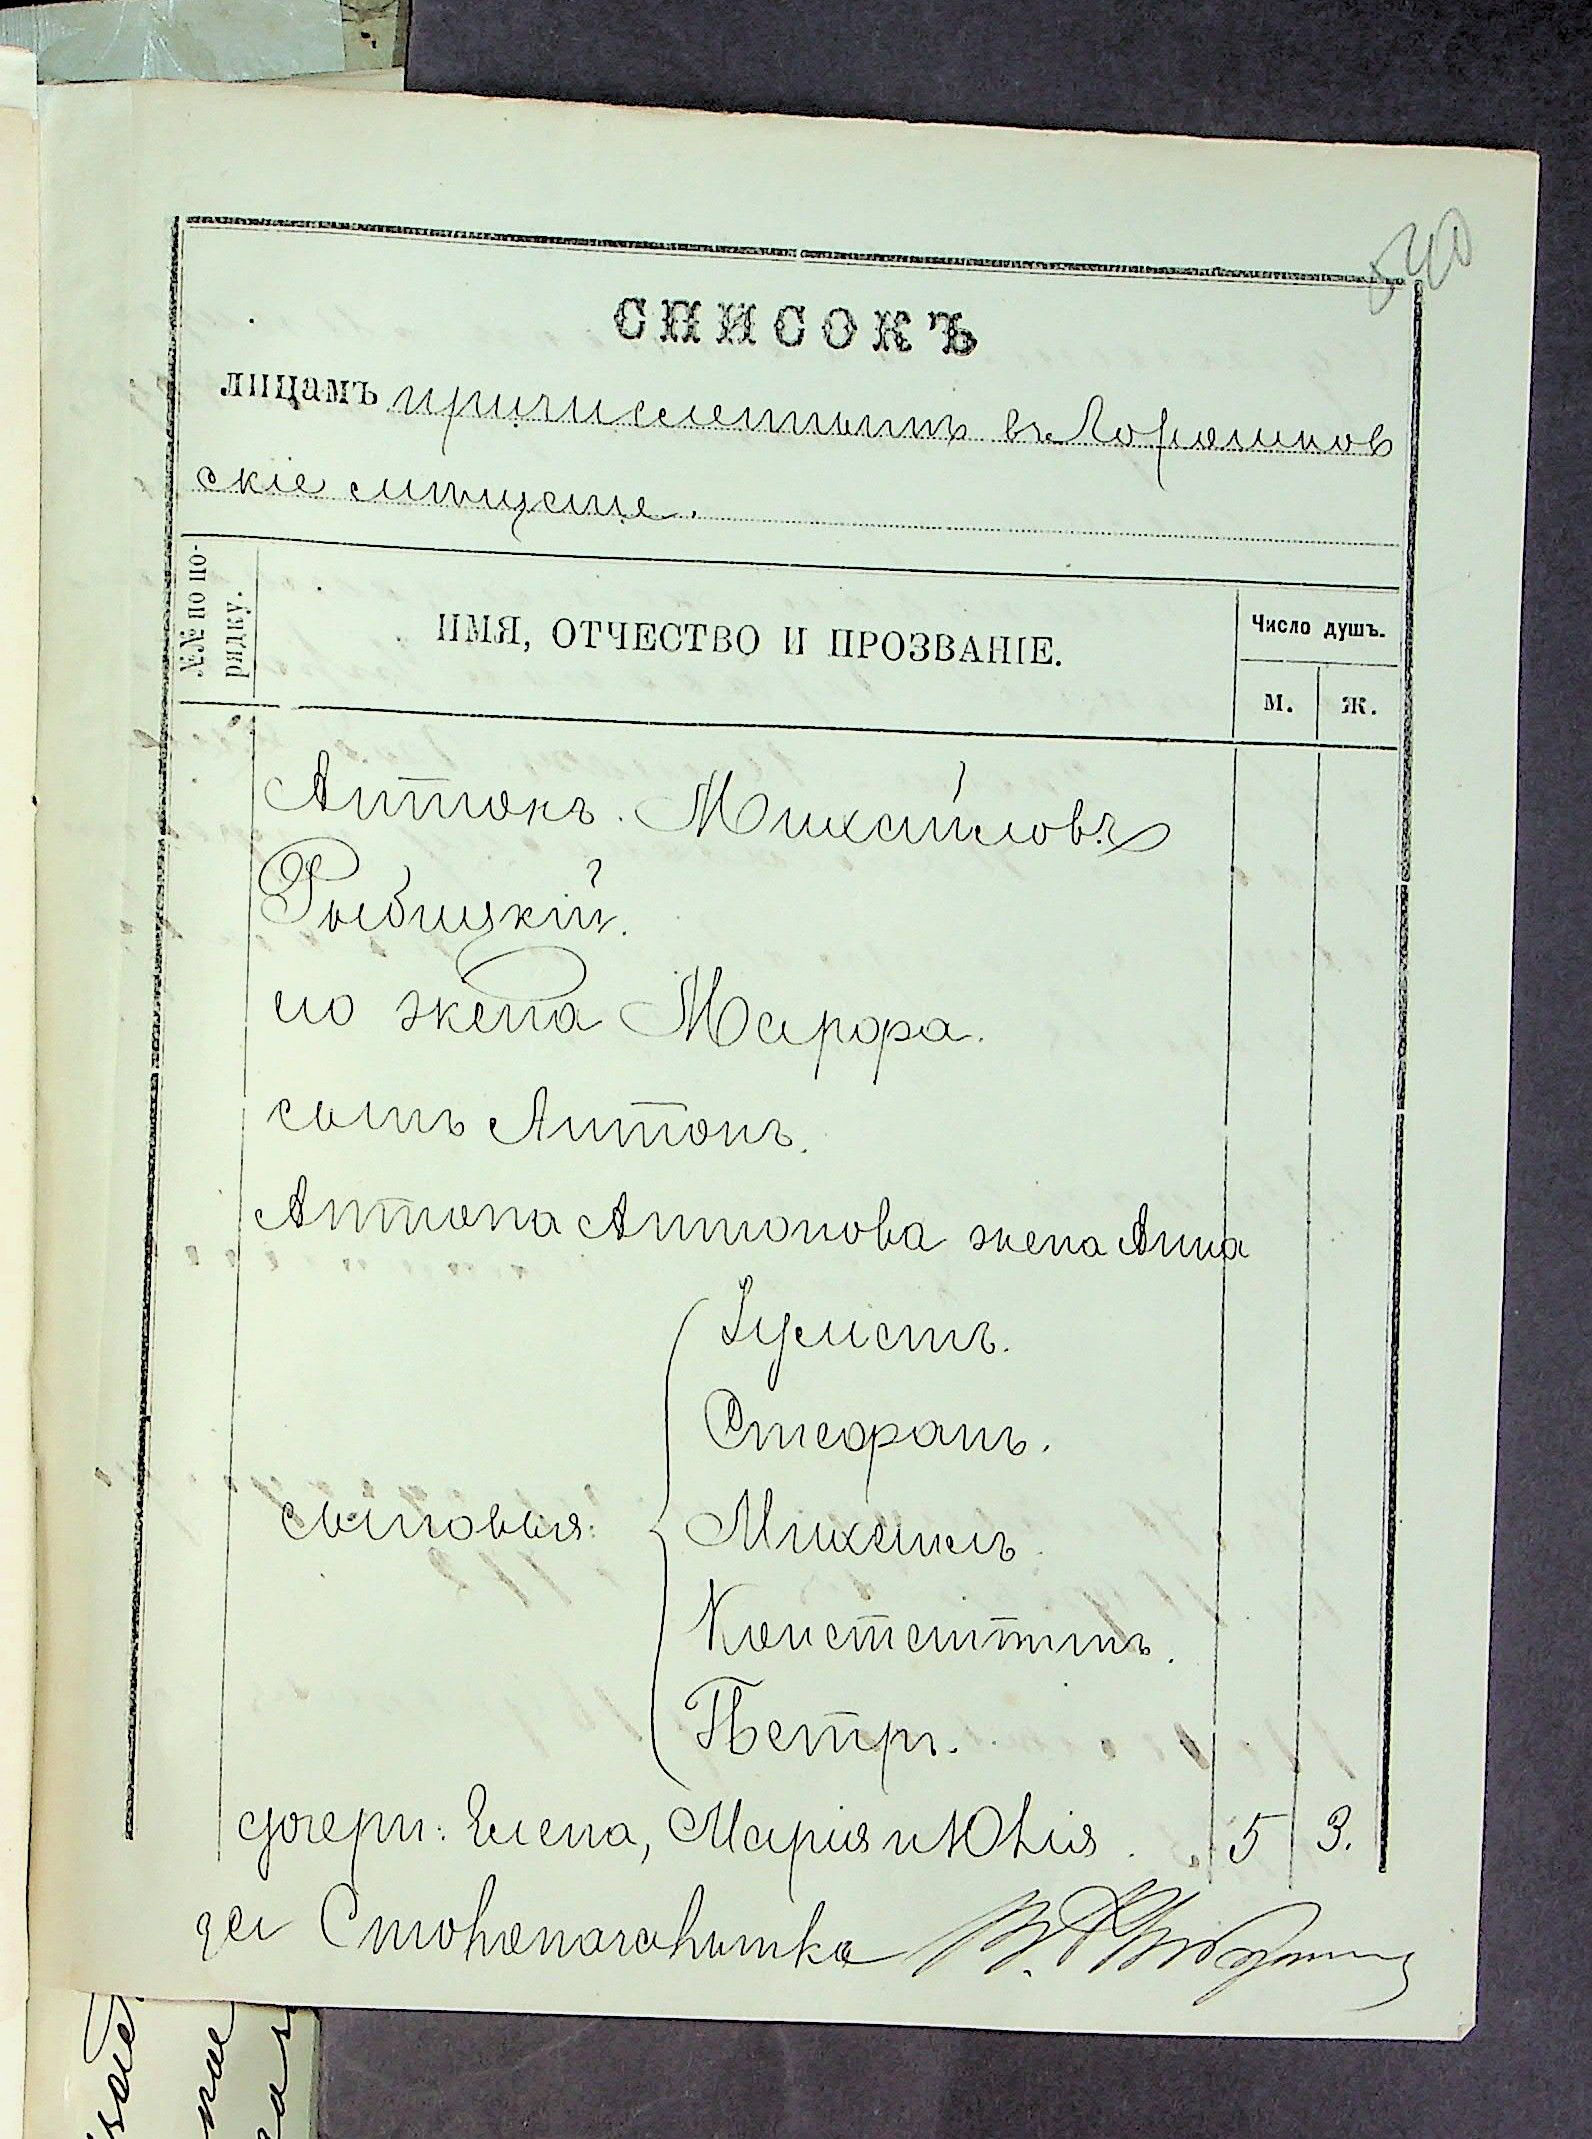 540
СПИСОКЪ
лицамъ причисленнымъ въ Горошков
скіе мѣщане.
№№ по по-
рядку.
ИМЯ, ОТЧЕСТВО И ПРОЗВАНІЕ.
Число душъ.
М.
Ж.
Антонъ Михайловъ
Рыбицкій.
его жена Марфа.
сынъ Антонъ.
Антона Антонова жена Анна
Стефанъ.
сыновья:
Михаилъ.
Константинъ.
Петръ.
дочери: Елена, Марія и Юлія. 5 3.
за Столоначальника